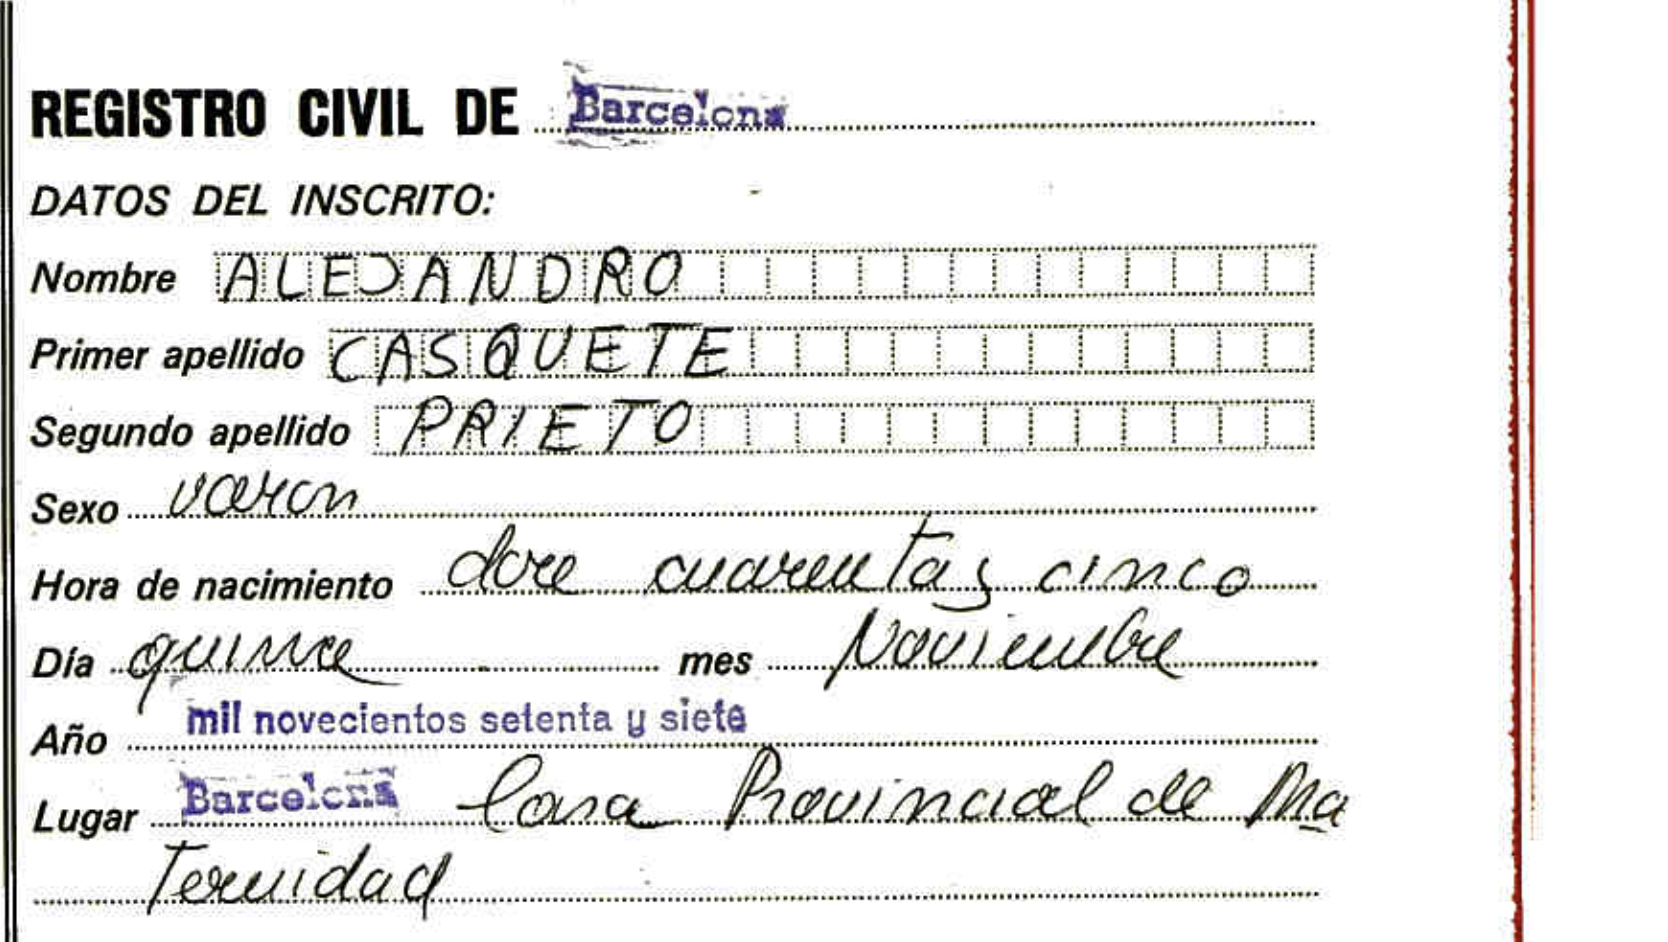 REGISTRO CIVIL DE Barcelona
DATOS DEL INSCRITO:
Nombre ALEJANDRO
Primer apellido CASQUETE
Segundo apellido PRIETO
Sexo varon
Hora de nacimiento doce cuarenta y cinco
Día quince mes Noviembre
Año mil novecientos setenta y siete
Lugar Barcelona Casa Provincial de Ma
ternidad